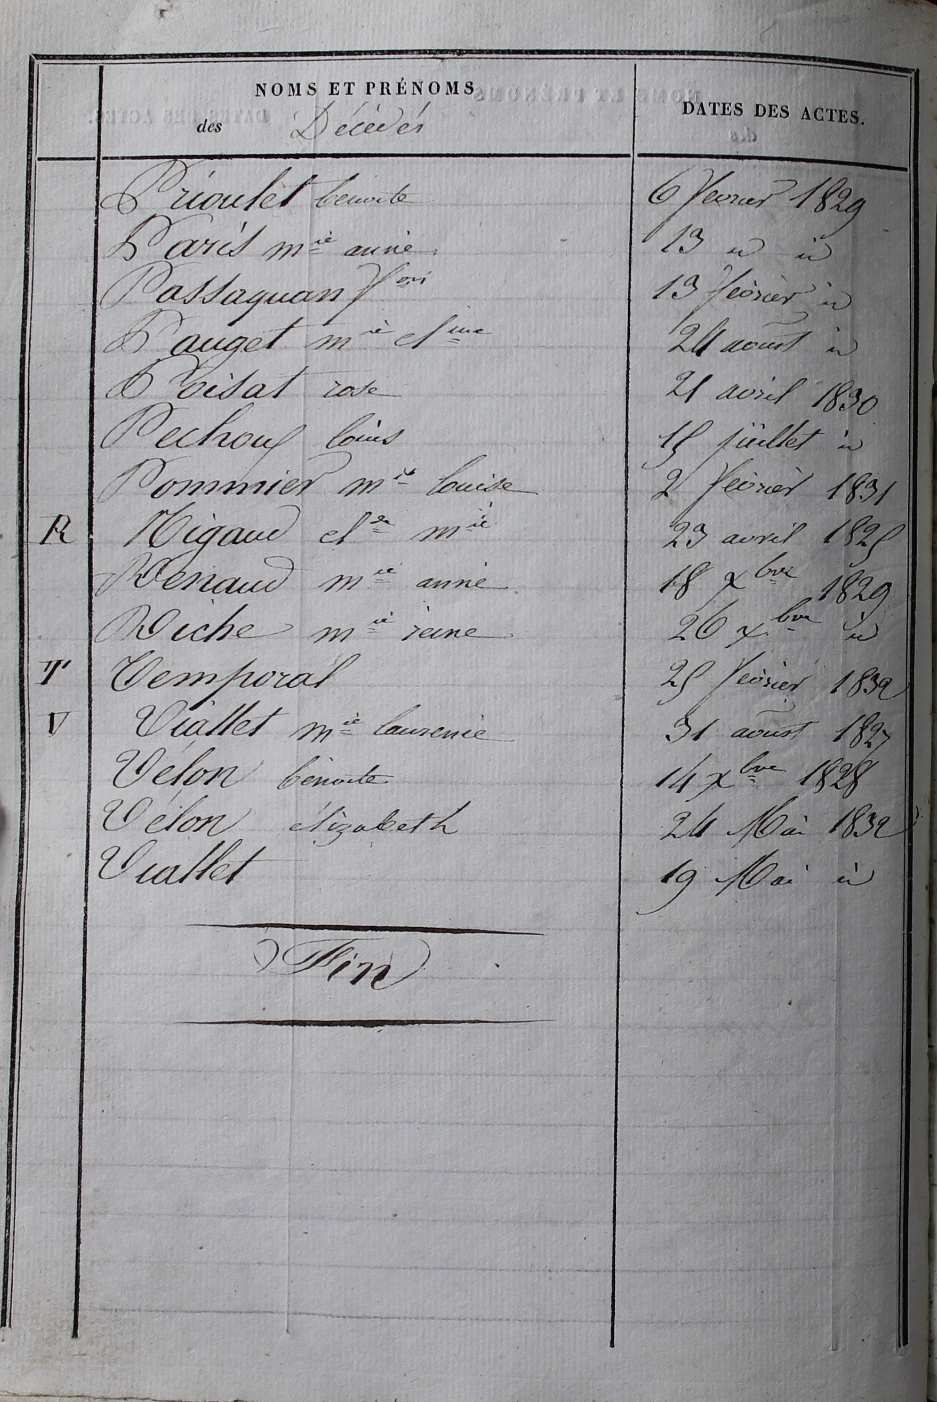 NOMS ET PRÉNOMS
des Décédés
DATES DES ACTES.
Prioulet benoite 6 fevrier 1829
Paris mie anne 13 id id
Passaquay foi 13 février id
Pauget mie cline 24 aoust id
Poisat rose 21 avril 1830
Pechoux loüis 15 jüillet id
Pommier mie louise 2 février 1831
R Rigaud clde mie 23 avril 1825
Renaud mie anne 18 xbre 1829
Riche mie reine 26 xbre id
T Temporal 25 février 1832
V Viallet mie laurence 31 aoust 1827
Vélon bénoite 14 xbre 1828
Vélon élizabeth 24 Mai 1832
Viallet 19 Mai id
Fin